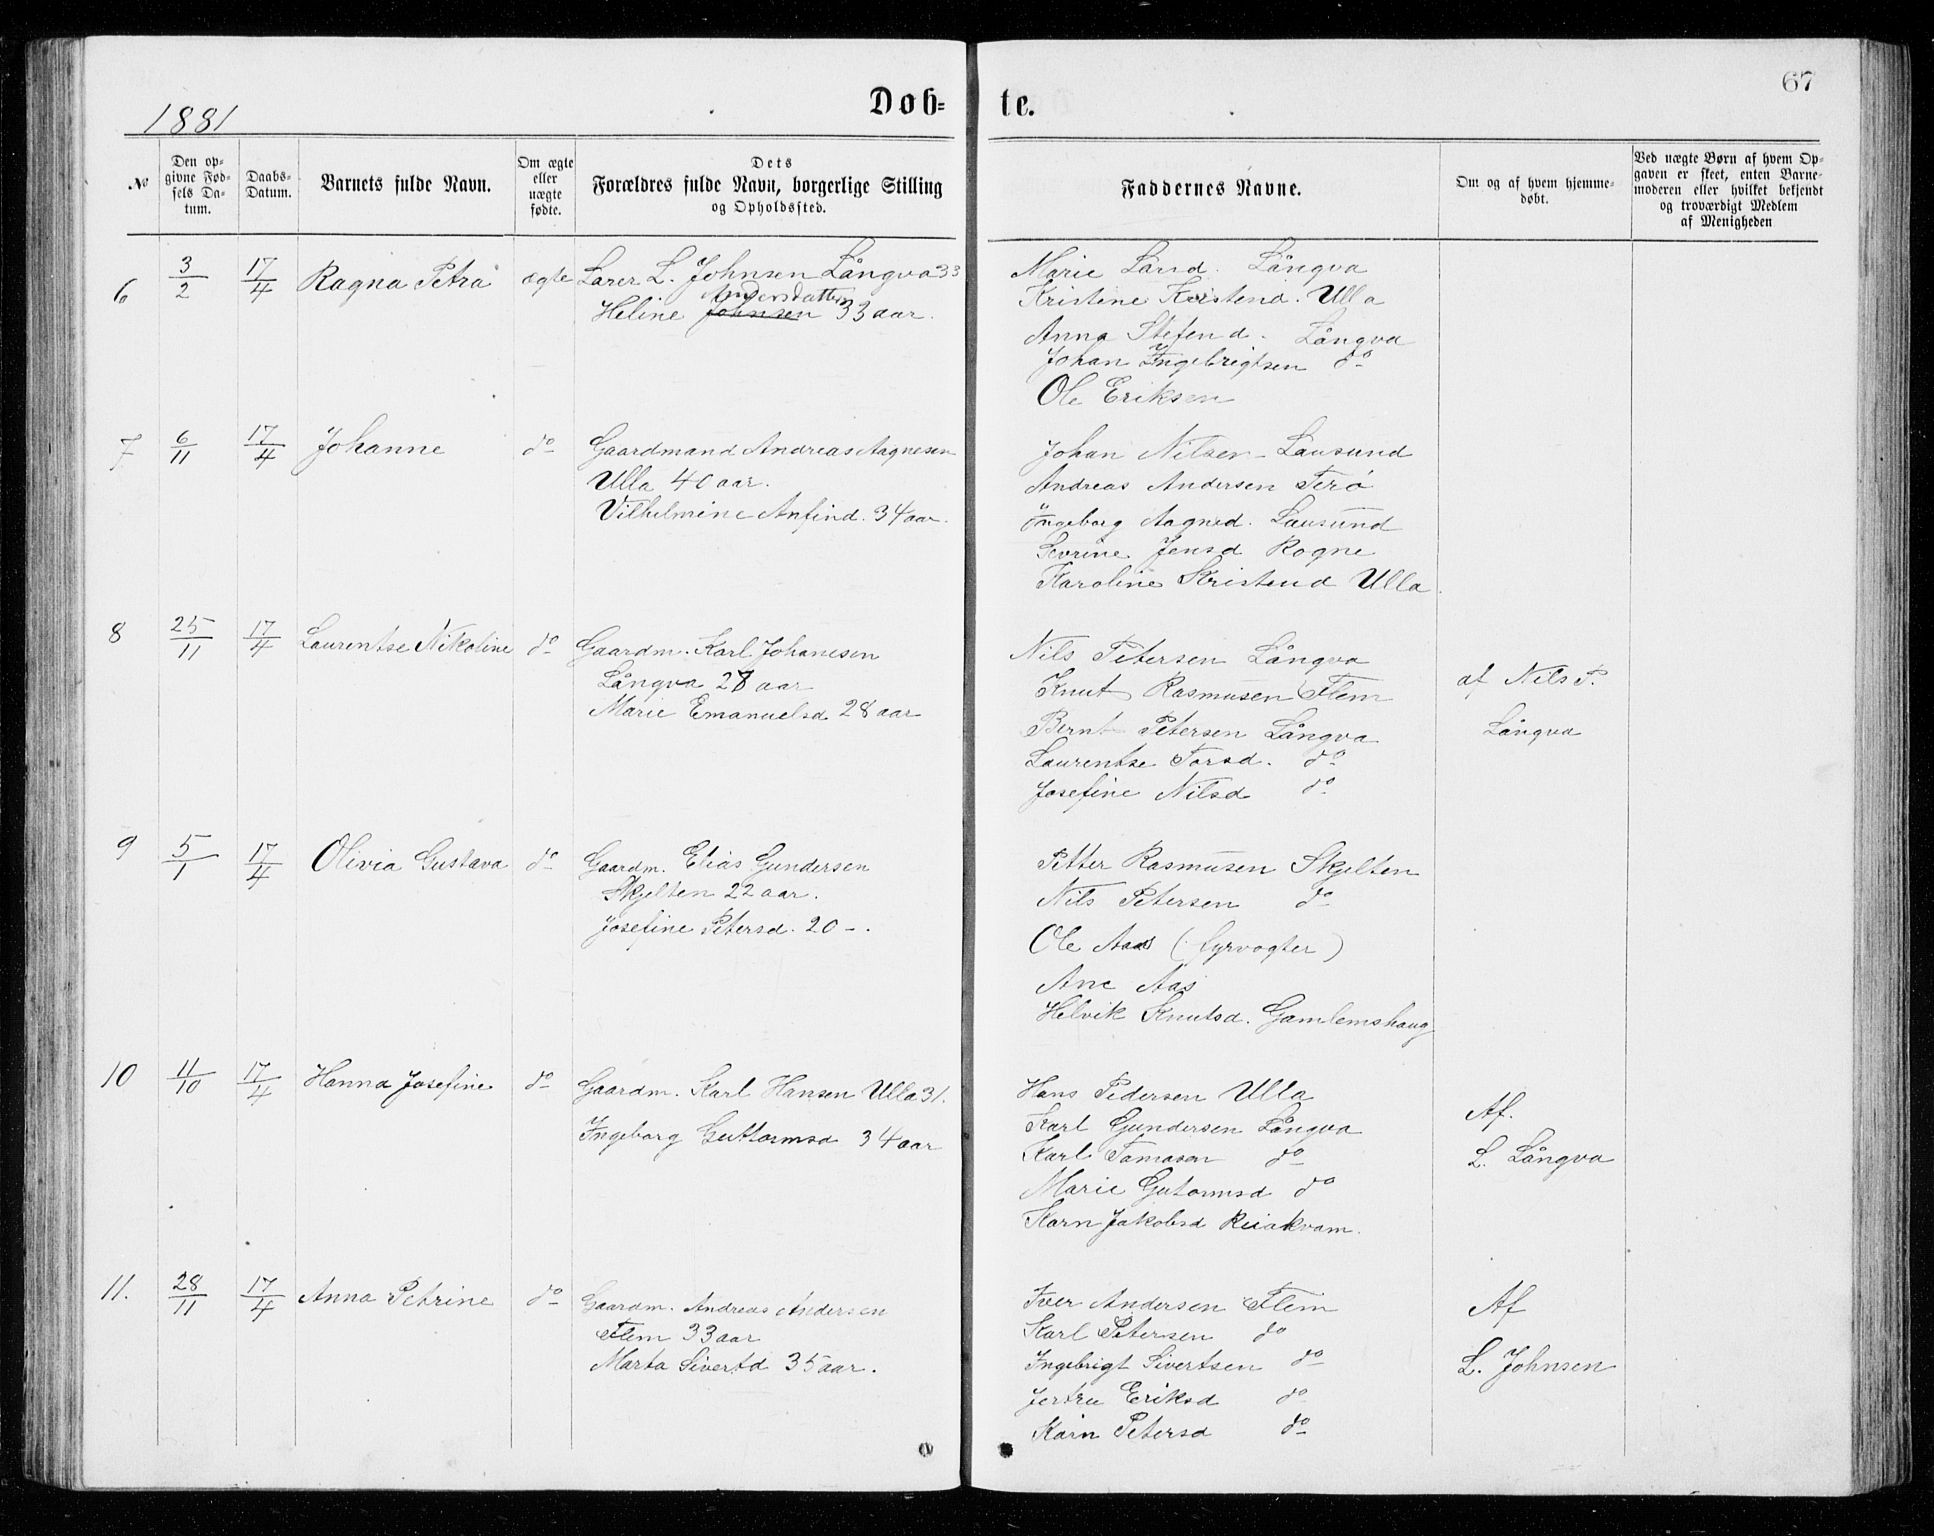 67
1881
Døb-
te.
No
Den op-
givne Fød-
sels Da-
tum.
Daabs-
Datum.
Barnets fulde Navn.
Om ægte
eller
uægte
fødte.
Dets
Forældres fulde Navn, borgerlige Stilling
og Opholdssted.
Faddernes Navne.
Om og af hvem hjemme-
døbt.
Ved uægte Børn af hvem Op-
gaven er skeet, enten Barne-
moderen eller hvilket bekjendt
og troværdigt Medlem
af Menigheden
6 3/2 17/4 Ragna Petra ægte Lærer L. Johnsen Långva 33
Andersdatter
Heline Johnsen 33 aar.
Marie Larsd. Långva
Kristine Kristend. Ulla
Anna Stefend. Långva
Johan Ingebrigtsen do
Ole Eriksen
7 6/11 17/4 Johanne do Gaardmand Andreas Aagnesen
Ulla 40 aar.
Vilhelmine Anfind. 34 aar.
Johan Nilsen Lausund
Andreas Andersen Terø
Ingeborg Aagned. Lausund
Sevrine Jensd Rogne
Karoline Kristend Ulla
8 25/11 17/4 Laurentse Nikoline do Gaardm. Karl Johanesen
Långva 28 aar
Marie Emanuelsd 28 aar
Nils Petersen Långva
Knut Rasmusen Flem
Bernt Petersen Långva
Laurentse Torsd. do
Josefine Nilsd do
af Nils P.
Långva
9 5/1 17/4 Olivia Gustava do Gaardm. Elias Gundersen
Skjelten 22 aar.
Josefine Petersd. 20 -.
Petter Rasmusen Skjelten
Nils Petersen do
Ole Aas (fyrvogter)
Ane Aas
Helvik Knutsd. Gamlemshaug
10 11/10 17/4 Hanna Josefine do Gaardm. Karl Hansen Ulla 31.
Ingeborg Guttormsd 34 aar
Hans Pedersen Ulla
Karl Gundersen Långva
Karl Tomasen do
Marie Gutormsd do
Karn Jakobsd
Af.
L. Långva
11. 28/11 17/4 Anna Petrine do Gaardm. Andreas Andersen
Flem 33 aar
Marta Sivertd 35 aar.
Iver Andersen Flem
Karl Petersen do
Ingebrigt Sivertsen do
Jertru Eriksd do
Karn Petersd do
Af
L. Johnsen